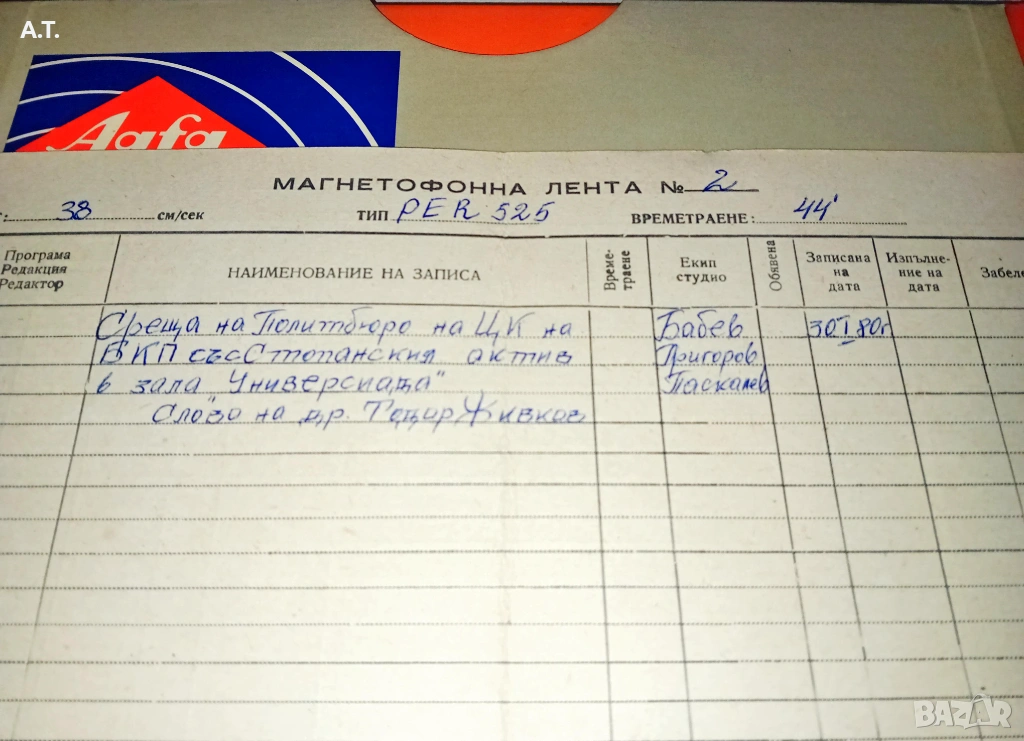 A.T.
Agfa
МАГНЕТОФОННА ЛЕНТА № 2
: 38 см/сек ТИП PER 525 ВРЕМЕТРАЕНЕ: 44'
Програма
Редакция
Редактор
НАИМЕНОВАНИЕ НА ЗАПИСА
Време-
траене
Екип
студио
Обявена
Записана
на
дата
Изпълне-
ние на
дата
Забеле
Среща на Политбюро на ЦК на Бабев 30 I 80г
БКП със Стопанския актив Григоров
в зала "Универсиада" Паскалев
Слово на др. Тодор Живков
BAZAR